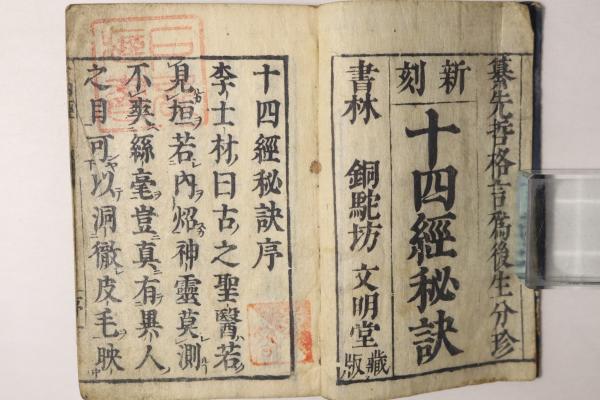 纂先哲格言為後生分珍
新刻
十四經秘訣
書林 銅駝坊 文明堂藏版
十四經秘訣序
李士材曰古之聖醫若
見垣若內炤神靈莫測
不爽絲毫豈真有異人
之目可以洞徹皮毛映